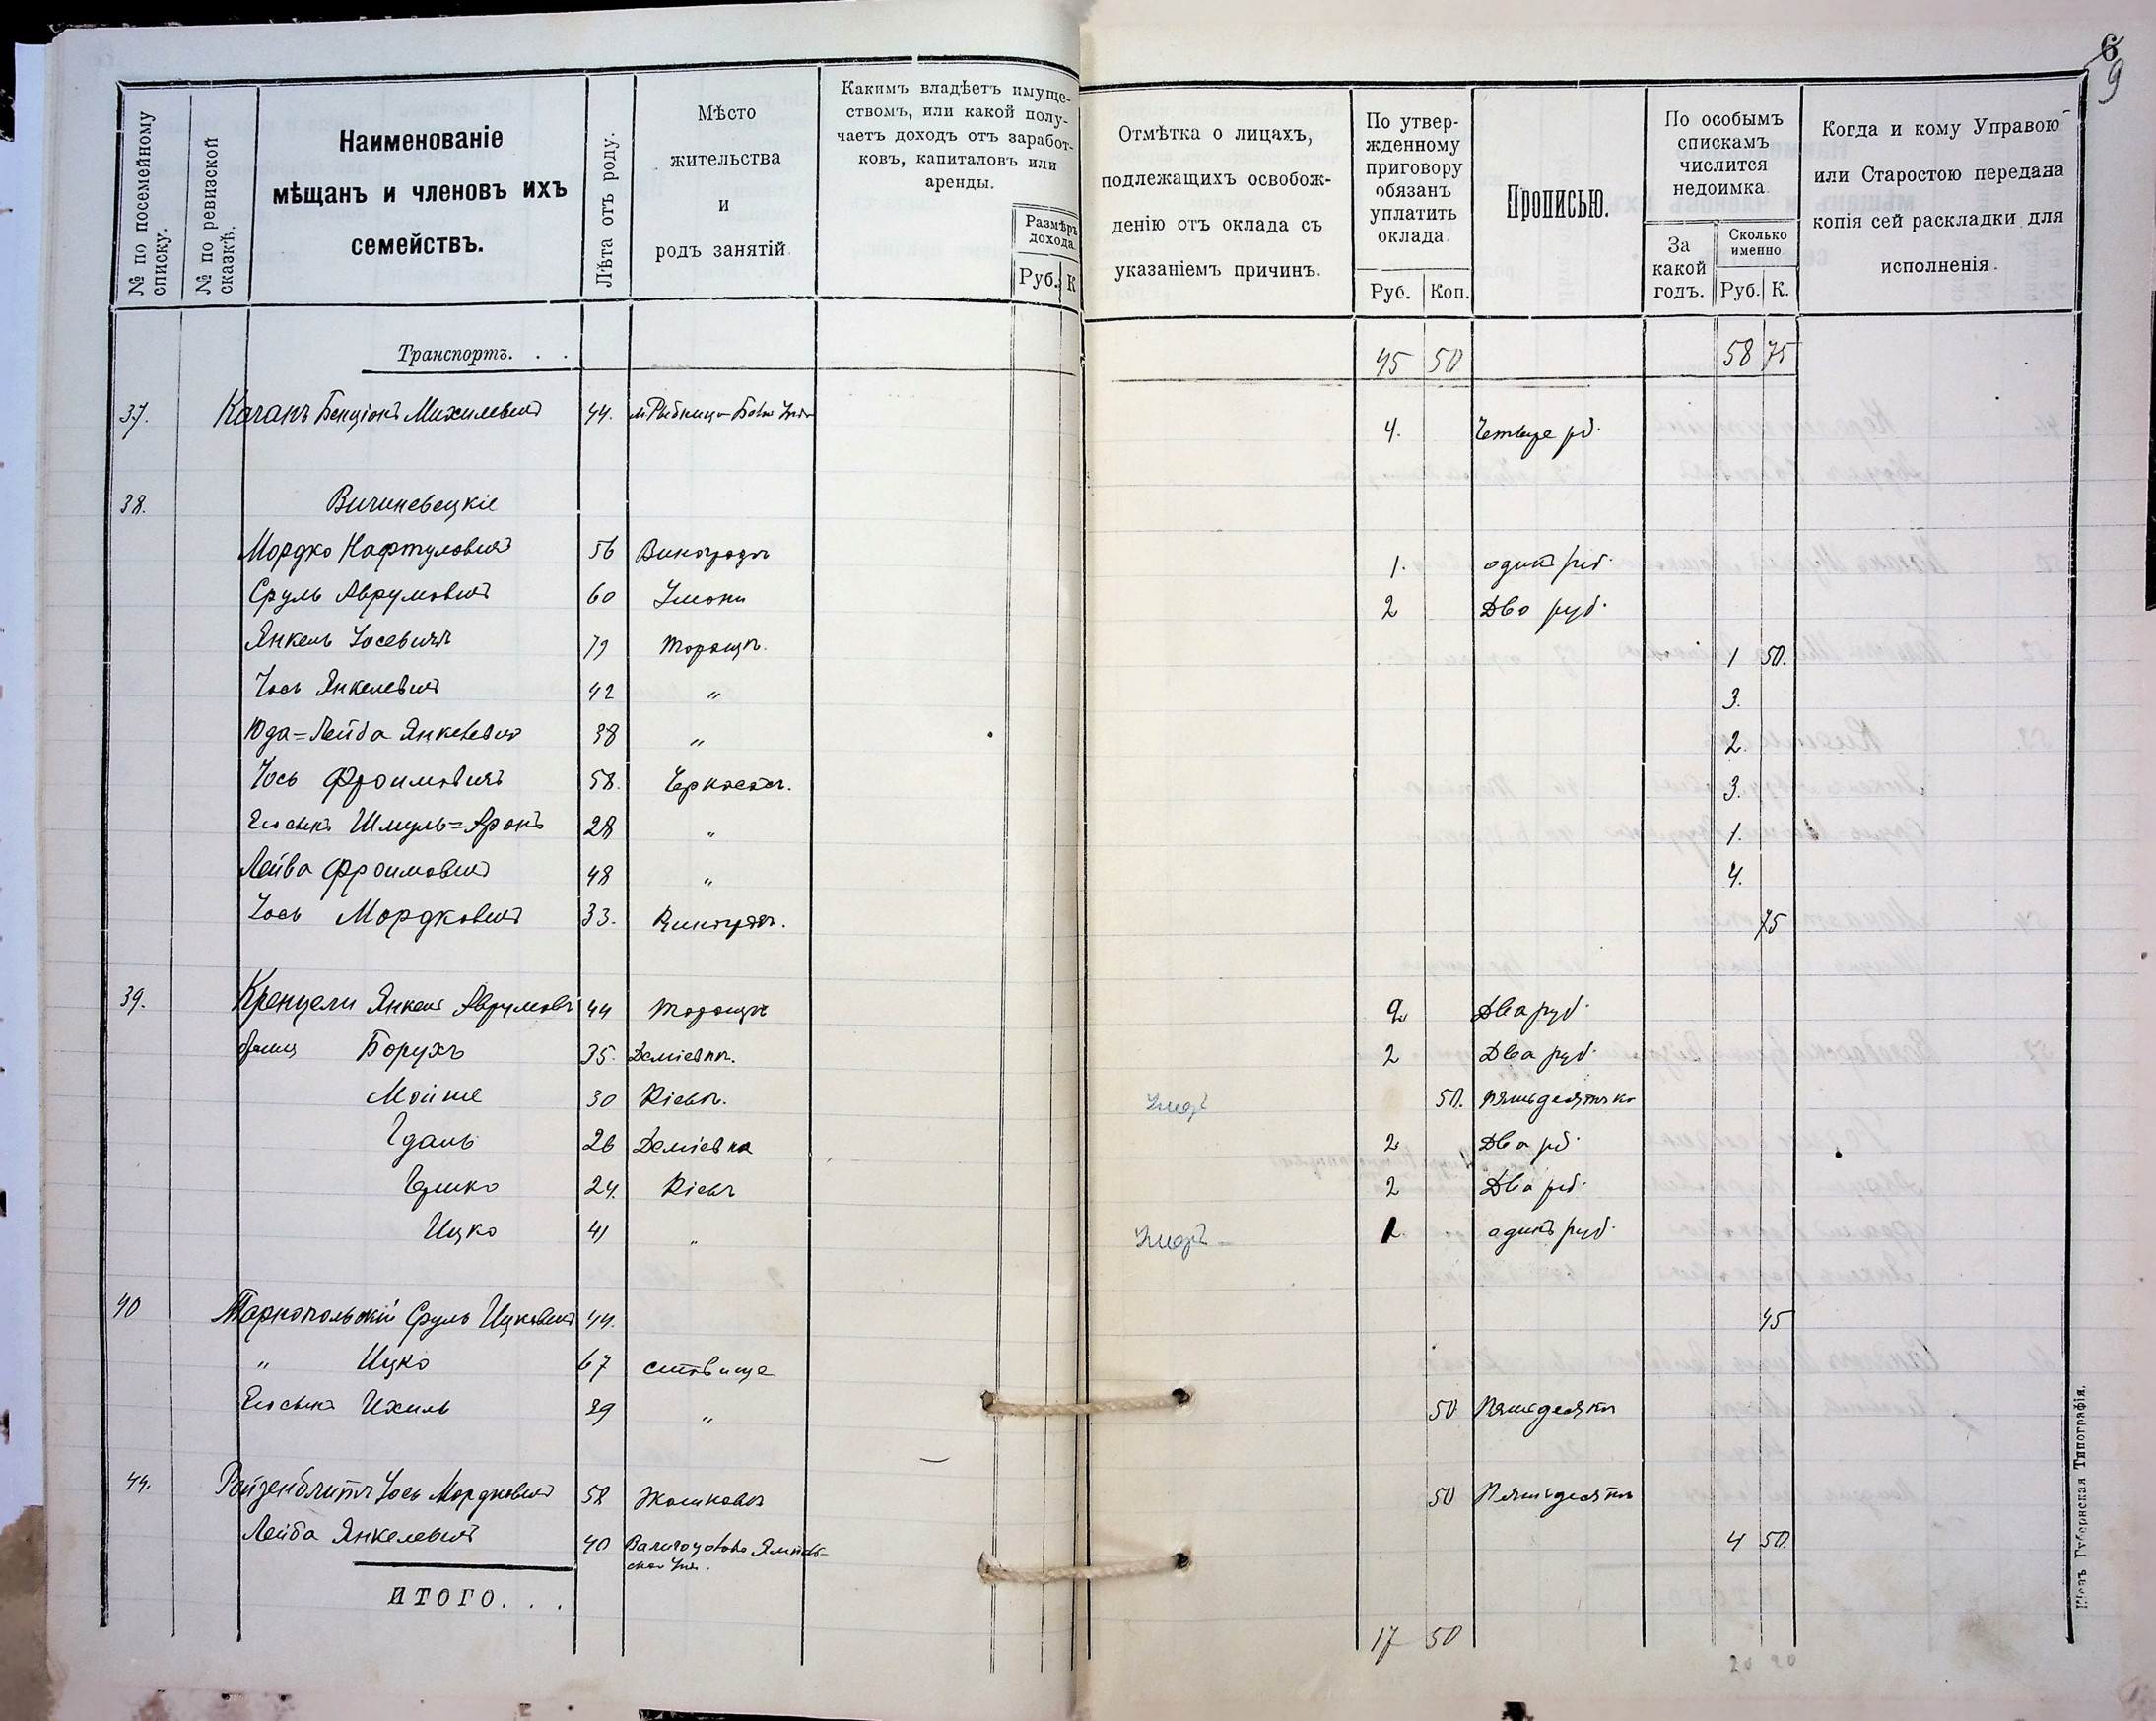 6
9
№ по посемейному списку.
№ по ревизской сказкѣ.
Наименованіе
мѣщанъ и членовъ ихъ
семействъ.
Лѣта отъ роду.
Мѣсто
жительства
и
родъ занятій.
Какимъ владѣетъ имуще-
ствомъ, или какой полу-
чаетъ доходъ отъ заработ-
ковъ, капиталовъ или
аренды.
Размѣръ
дохода.
Руб. К
Отмѣтка о лицахъ,
подлежащихъ освобож-
денію отъ оклада съ
указаніемъ причинъ.
По утвер-
жденному
приговору
обязанъ
уплатить
оклада.
Руб. Коп.
Прописью.
По особымъ
спискамъ
числится
недоимка.
За
какой
годъ.
Сколько
именно
Руб. К.
Когда и кому Управою
или Старостою передана
копія сей раскладки для
исполненія.
Транспортъ. . . 45 50 58 75
37. Каганъ Бенціонъ Михилевичъ 44. м. Рыбница 4. Четыре рб.
38.
Мордко Нафтуловичъ 56 1. одинъ руб.
Сруль Аврумовичъ 60 Умань 2 Два руб.
Янкель Іосевичъ 79 Таращ. 1 50.
Іось Янкелевичъ 42 " 3.
Юда=Лейба Янкелевичъ 38 " 2.
Іось Фроимовичъ 58. Черкассы. 3.
Его сынъ Шмуль=Аронъ 28 " 1.
Лейба Фроимовичъ 48 " 4.
Іось Мордковичъ 33. 75
39. Янкель Аврумов 44 Тараща 2 Два руб.
братья Борухъ 35. Деміевка. 2 Два руб.
Мойше 30 Кіевъ. 50. пятьдесят ко
Гдаль 26 Деміевка 2 Два рб.
24. Кіевъ 2 Два рб.
Ицко 41 " 1 одинъ руб.
40 Тарнопольскій Сруль Ицковичъ 44. 45
" Ицко 67 ставище
Его сынъ Ихиль 39 " 50 Пятьдесят
44. Ройзенблитъ Іось Мордковичъ 58 Жашковъ 50 Пятьдесят
Лейба Янкелевичъ 40 4 50
ИТОГО. . .
17 50
20 20
Кіевъ Губернская Типографія.